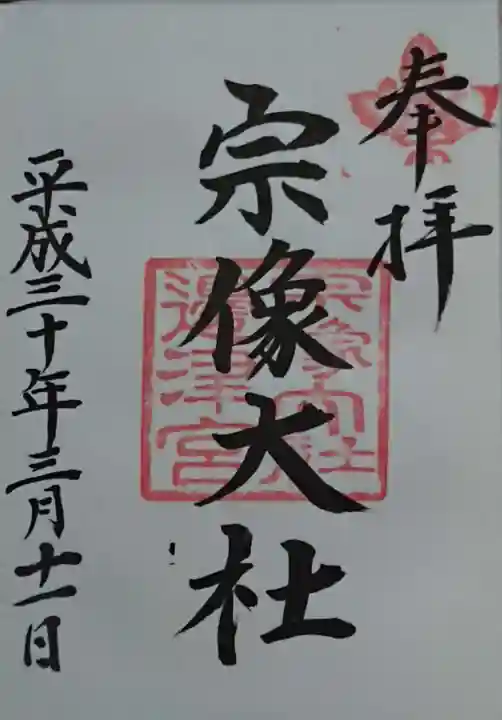 奉拝
宗像大社
宗像大社
邊津宮
平成三十年三月十一日